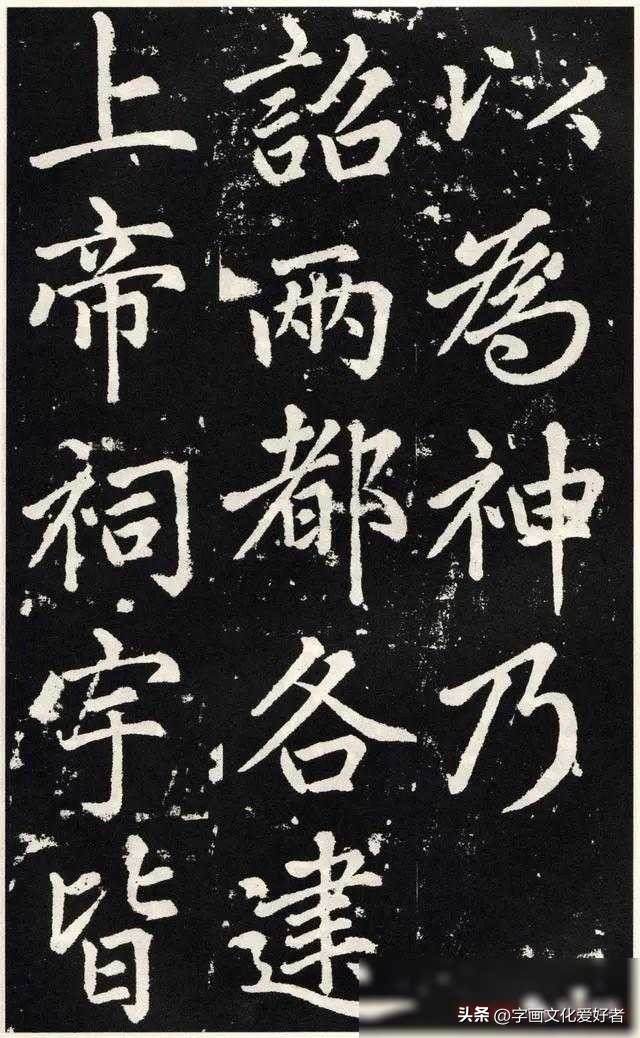 以為神乃
詔兩都各建
上帝祠宇皆
头条 @字画文化爱好者